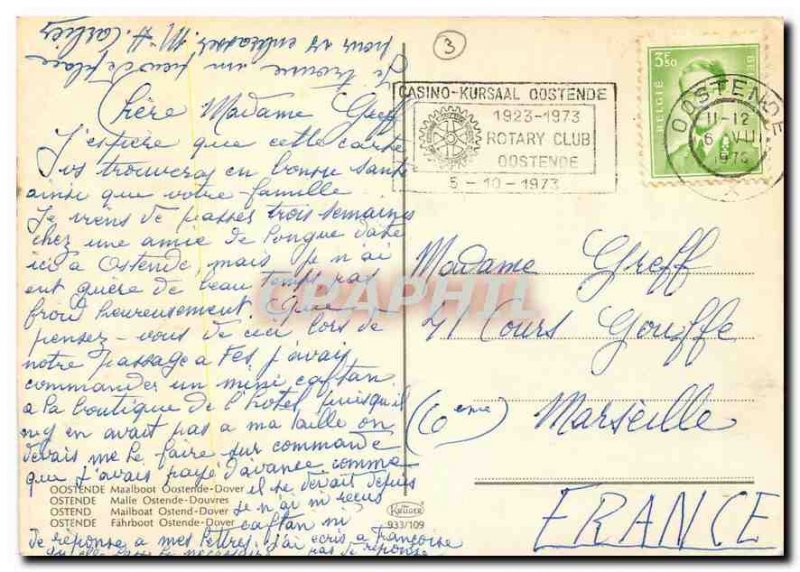 Je trouve un peu de place
pour vs embrasser. M. H.
3
Chère Madame Greff
J'espère que cette carte
vs trouveras en bonne santé
ainsi que votre famille.
Je viens de passer trois semaines
chez une amie de longue date
ici a Ostende, mais je n'ai
eut guère de beau temps pas
froid heureusement. Que
pensez-vous de ceci lors de
notre passage a Fes j'avais
commander un mini caftan
a la boutique de l'hotel puisqu'il
n'y en avait pas a ma taille on
devais me le faire sur commande
que j'avais payé d'avance comme
il se devait depuis
je n'ai ni reçus
caftan ni
de réponse a mes lettres. J'ai ecris a Françoise
pas de réponse
OOSTENDE Maalboot Oostende-Dover
OSTENDE Malle Ostende-Douvres
OSTEND Mailboat Ostend-Dover
OSTENDE Fährboot Ostende-Dover
933/109
CASINO-KURSAAL OOSTENDE
1923-1973
ROTARY CLUB
OOSTENDE
5-10-1973
3F50
BELGIË
OOSTENDE
11-12
6 VIII
Madame Greff
41 Cours Gouffe
(6eme) Marseille
FRANCE
CPAPHIL